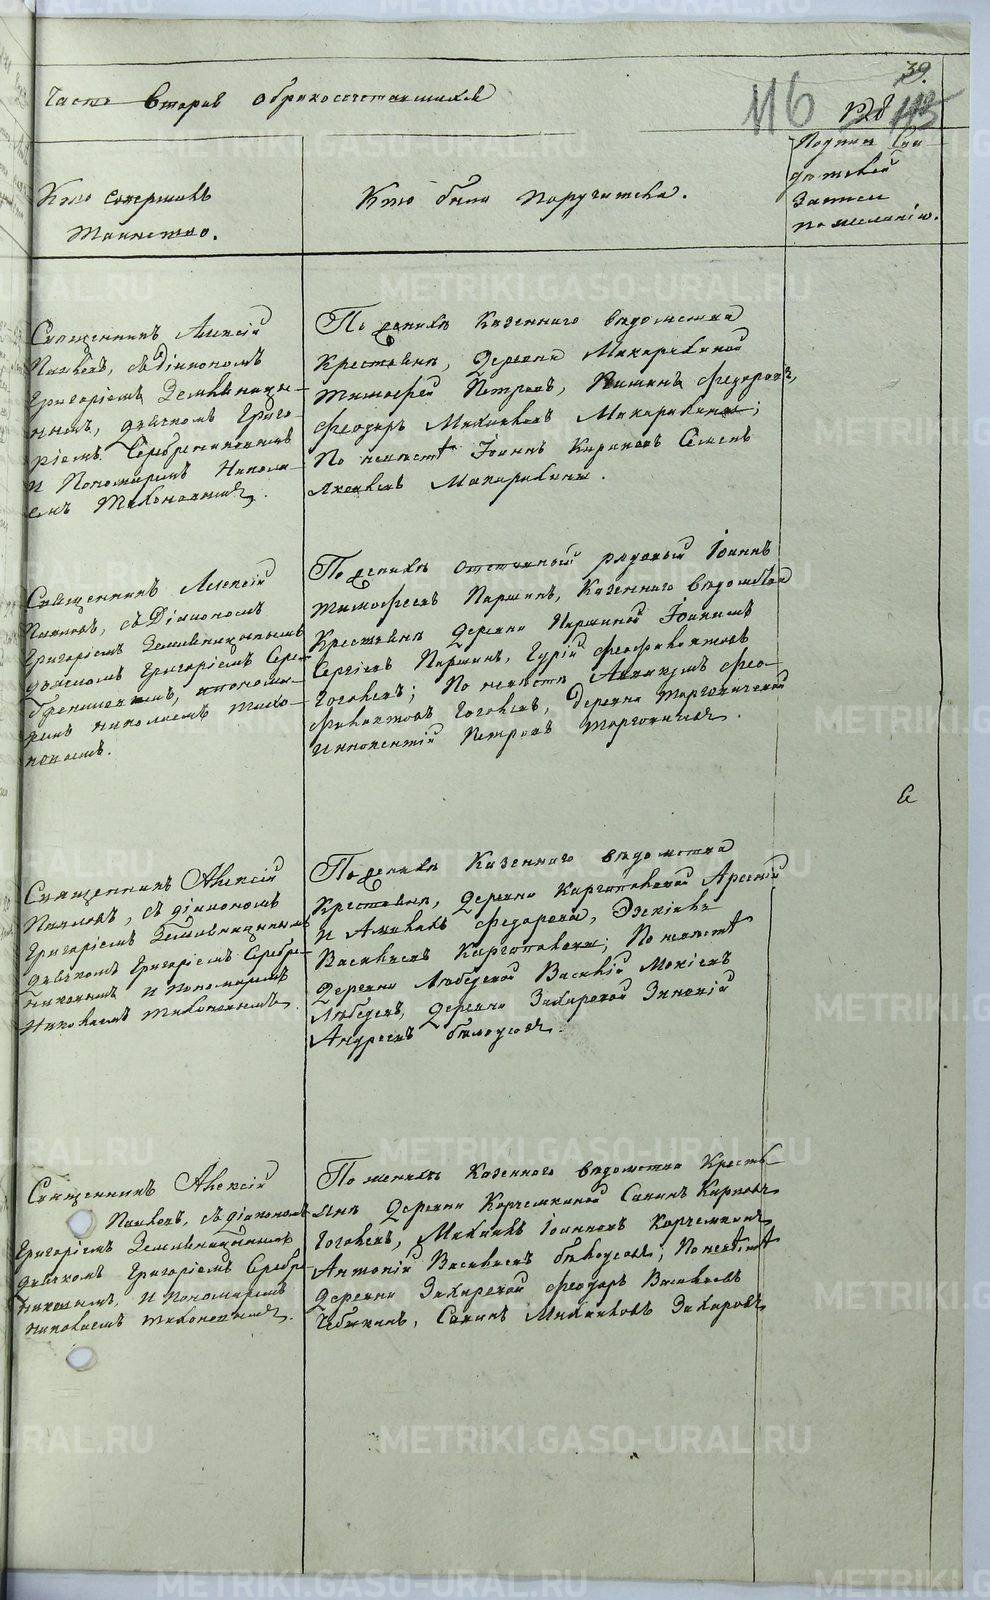 39.
Часть Вторая о бракосочетавшихся
116
128
Кто совершалъ
Таинство.
Кто были поручители.
Подписи Сви
дѣтелей
Записи
по желанію.
Священникъ Алексій
Павловъ, съ Діакономъ
Григоріемъ Земляницы-
нымъ, дьячкомъ Григо-
ріемъ Серебренниковымъ
и Пономаремъ Никола-
емъ Тихоновымъ.
По женихѣ Казеннаго вѣдомства
Крестьяне, Деревни Макарихиной
Тимофей Петровъ, Федоровъ,
Феодоръ Михайловъ Макарихины;
По невѣстѣ Іоаннъ Кириловъ Семенъ
Яковлевъ Макарихины.
Священникъ Алексій
Павловъ, съ Діакономъ
Григоріемъ Земляницынымъ
дьячкомъ Григоріемъ Сере-
бренниковымъ, и понома-
ремъ Николаемъ Тихо-
новымъ.
По женихѣ отставный рядовый Іоаннъ
Тимофеевъ Паршинъ, Казеннаго вѣдомства
Крестьяне Деревни Паршиной Іоакимъ
Сергіевъ Паршинъ, Гурій Феофилактовъ
Гоголевъ; По невѣстѣ Аввакумъ Фео-
филактовъ Гоголевъ, Деревни
Иннокентій Петровъ
Священникъ Алексій
Павловъ, съ діакономъ
Григоріемъ Земляницынымъ
дьячкомъ Григоріемъ Серебре-
никовымъ и Пономаремъ
Николаемъ Тихоновымъ.
По женихѣ Казеннаго вѣдомства
Крестьяне, Деревни Каргаполовой Арсеній
и Федоровы,
Васильевъ Каргаполовы; По невѣстѣ
Деревни Лебедевой Василій Мокіевъ
Лебедевъ, Деревни Захаровой Зиновій
Андреевъ Бѣлоусовъ.
Священникъ Алексій
Павловъ, съ діакономъ
Григоріемъ Земляницынымъ
дьячкомъ Григоріемъ Серебре
никовымъ, и Пономаремъ
Николаемъ Тихоновымъ.
По женихѣ Казеннаго вѣдомства Кресть
яне Деревни Корчемкиной Савинъ Карповъ
Гоголевъ, Михаилъ Іоанновъ Корчемкинъ
Антоній Васильевъ Бѣлоусовъ; По невѣстѣ
Деревни Захаровой Феодоръ Васильевъ
Савинъ Михайловъ Захаровъ
METRIKI.GASO-URAL.RU